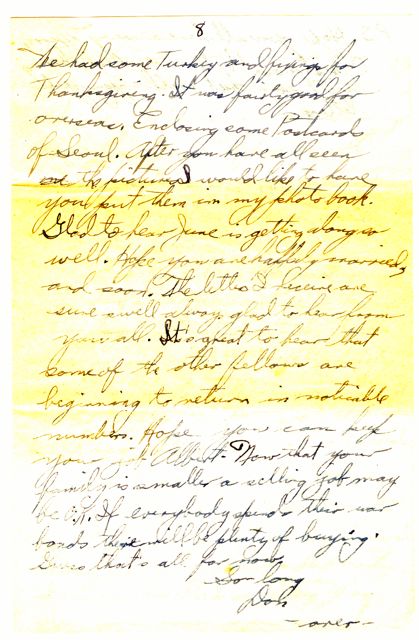 8
We had some Turkey and fixings for
Thanksgiving. It was fairly good for
overseas. Enclosing some Postcards
of Seoul. After you have all seen
the pictures I would like to have
you put them in my photo book.
Glad to hear June is getting along so
well. Hope you are happily married,
and soon. The letters I receive are
sure swell alway glad to hear from
you all. It's great to hear that
some of the other fellows are
beginning to return in noticable
numbers. Hope you can keep
your job Albert. Now that your
family is smaller a selling job may
be O.K. If everybody spends their war
bonds there will be plenty of buying.
Guess that's all for now
So long
Don
- over -